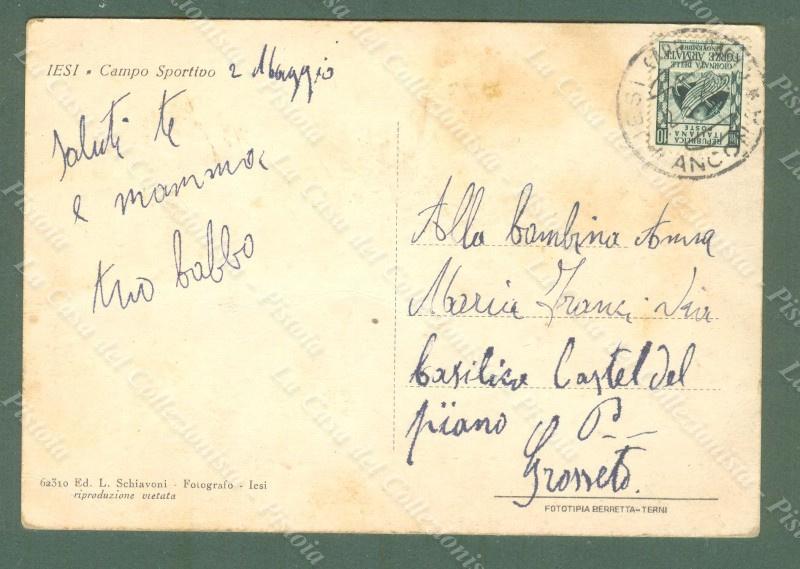 IESI • Campo Sportivo 2 Maggio
Saluti te
e mamma
tuo babbo
REPUBBLICA
ITALIANA
POSTE
10
GIORNATA DELLE
FORZE ARMATE
IESI
ANCONA
Alla bambina Anna
Maria Franci Via
Basilica Castel del
piano P
Grosseto.
62310 Ed. L. Schiavoni - Fotografo - Iesi
riproduzione vietata
FOTOTIPIA BERRETTA-TERNI
La Casa del Collezionista - Pistoia